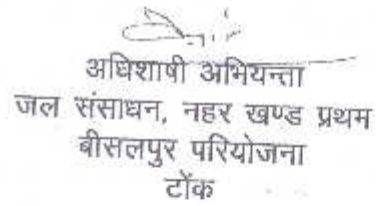 अधिशाषी अभियन्ता
जल संसाधन, नहर खण्ड प्रथम
बीसलपुर परियोजना
टोंक